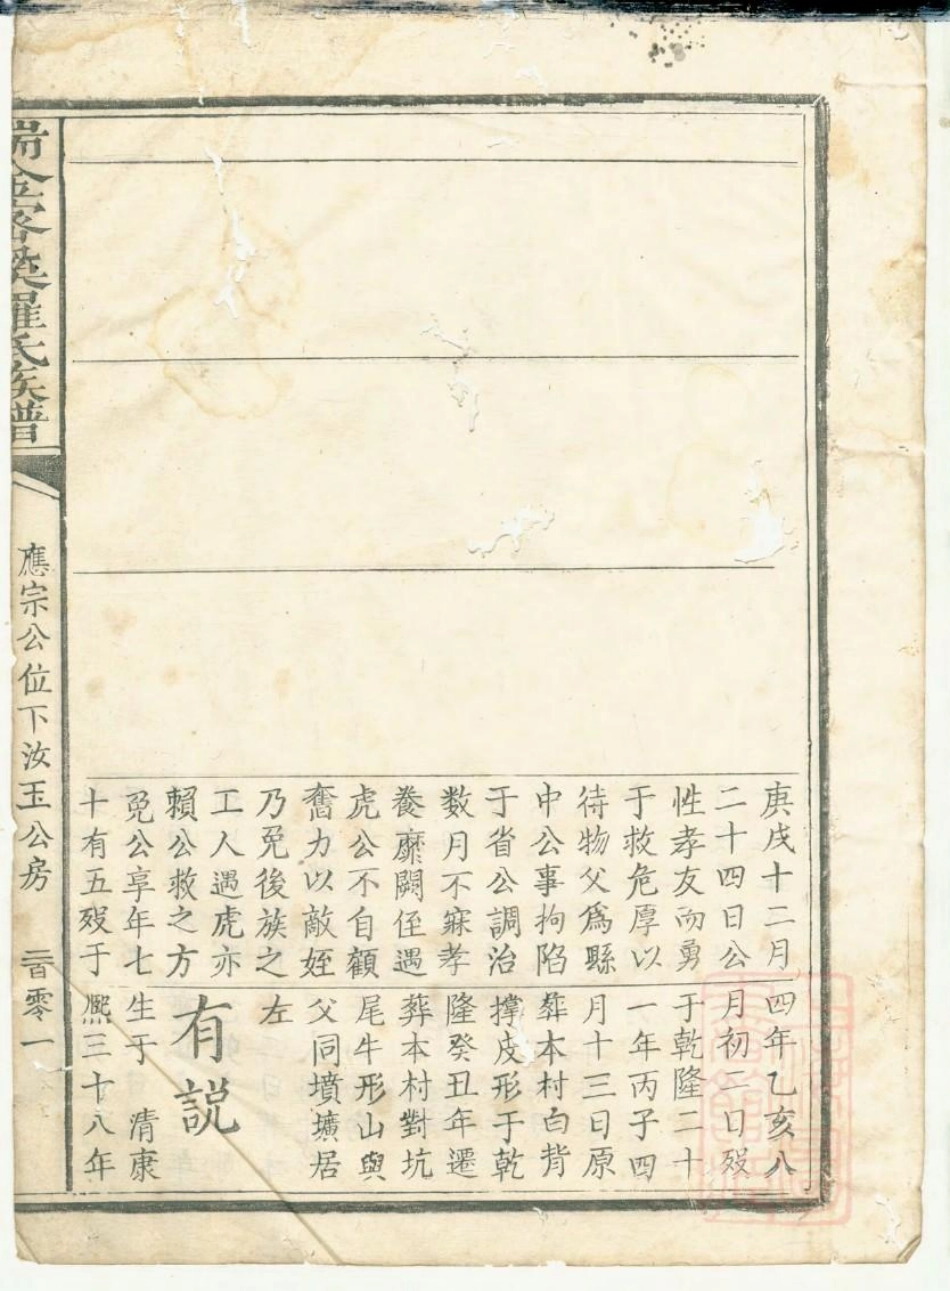 庚戌十二月
二十四日公
性孝友而勇
于救危厚以
待物父爲縣
中公事拘陷
于省公調治
数月不寐孝
養靡闕侄遇
虎公不自顧
奮力以敵姪
乃免後族之
工人遇虎亦
賴公救之方
免公享年七
十有五殁于
四年乙亥八
月初二日殁
于乾隆二十
一年丙子四
月十三日原
葬本村白背
撑皮形于乾
隆癸丑年遷
葬本村對坑
尾牛形山與
父同墳壙居
左
有説
生于 清康
熙三十八年
羅氏族譜
應宗公位下汝玉公房 二百零一